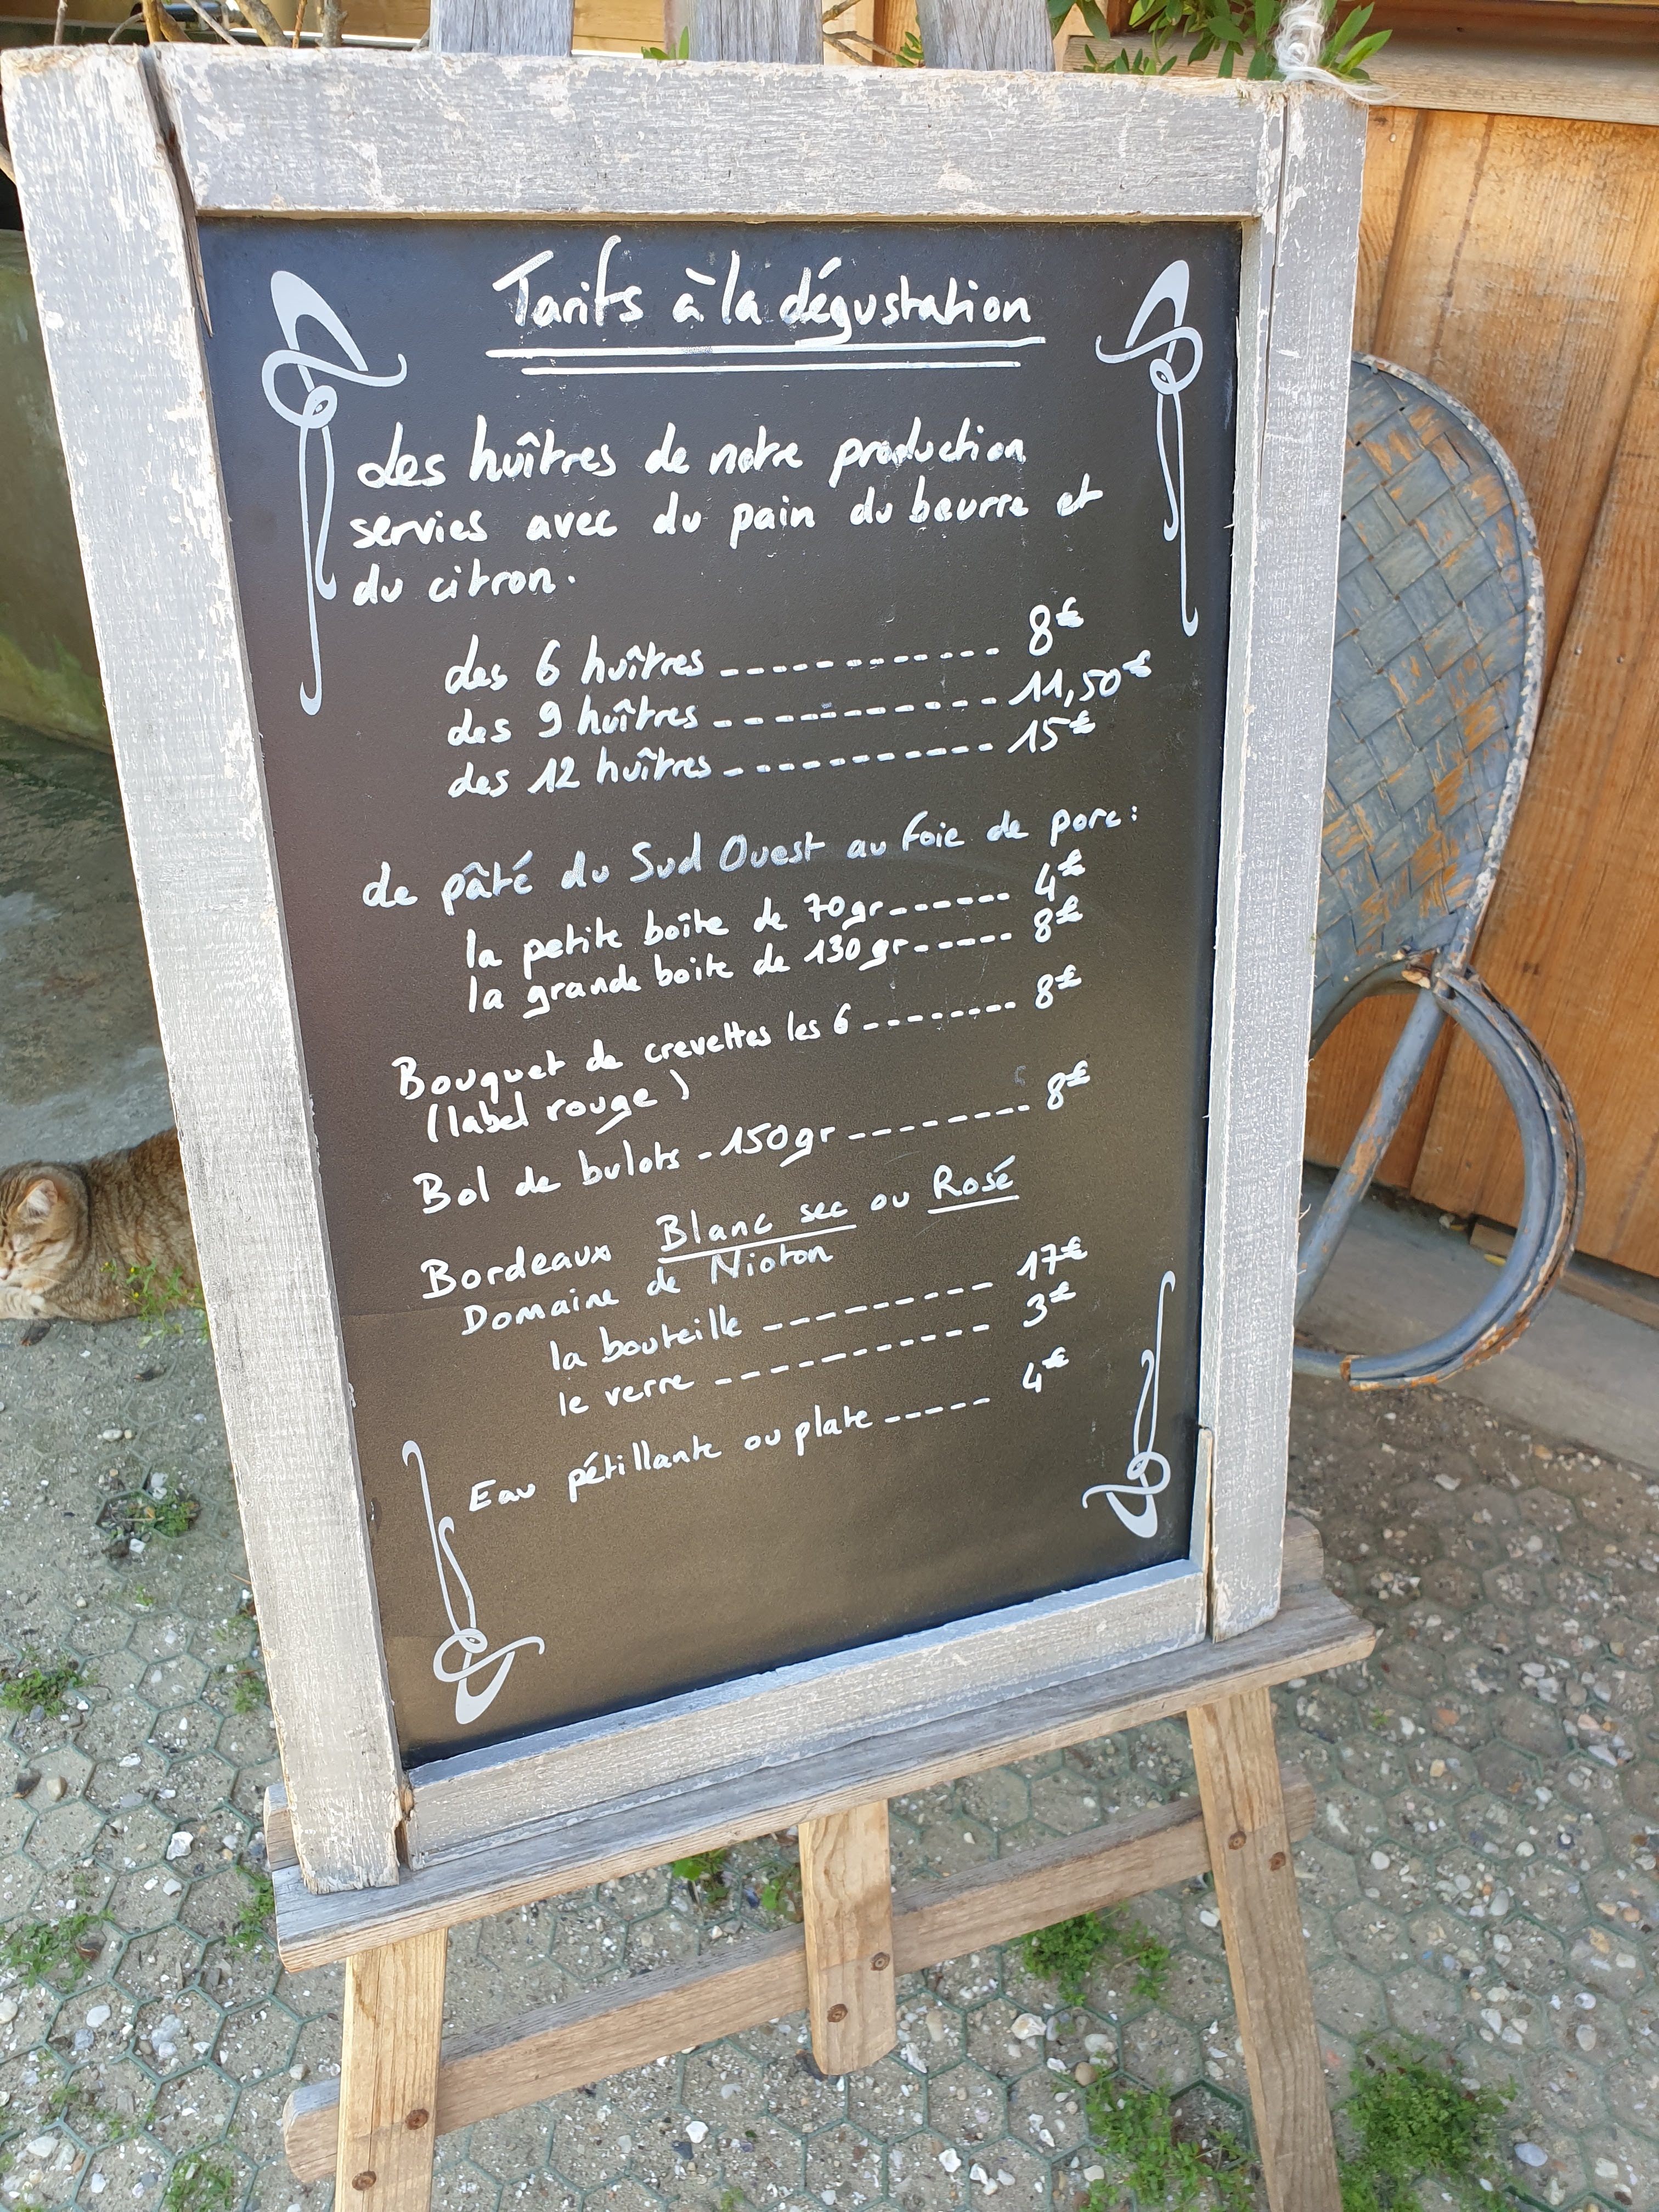 Tarifs à la dégustation
des huîtres de notre production
servies avec du pain du beurre et
du citron.
des 6 huîtres ------------ 8€
des 9 huîtres ------------ 11,50€
des 12 huîtres ------------ 15€
de pâté du Sud Ouest au foie de porc:
la petite boîte de 70gr ------ 4€
la grande boite de 130gr ----- 8€
Bouquet de crevettes les 6 -------- 8€
(label rouge)
Bol de bulots - 150gr --------- 8€
Bordeaux Blanc sec ou Rosé
Domaine de Nioton
la bouteille --------- 17€
le verre ----------- 3€
Eau pétillante ou plate ----- 4€